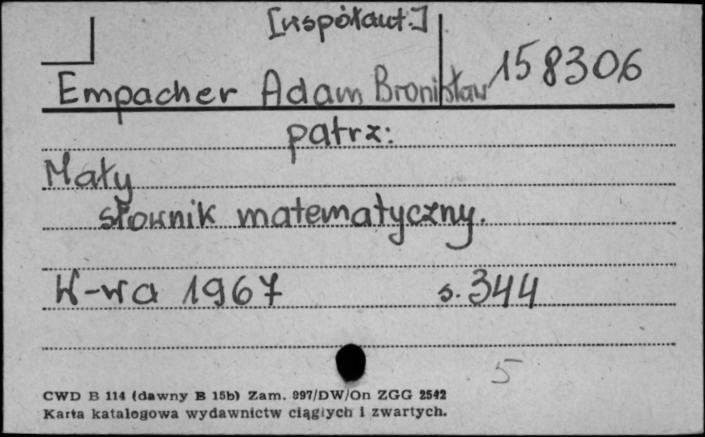 [współaut.]
Empacher Adam Bronisław 158306
patrz:
Mały
słownik matematyczny.
W-wa 1967 s. 344
5
CWD B 114 (dawny B 15b) Zam. 997/DW/On ZGG 2542
Karta katalogowa wydawnictw ciągłych i zwartych.